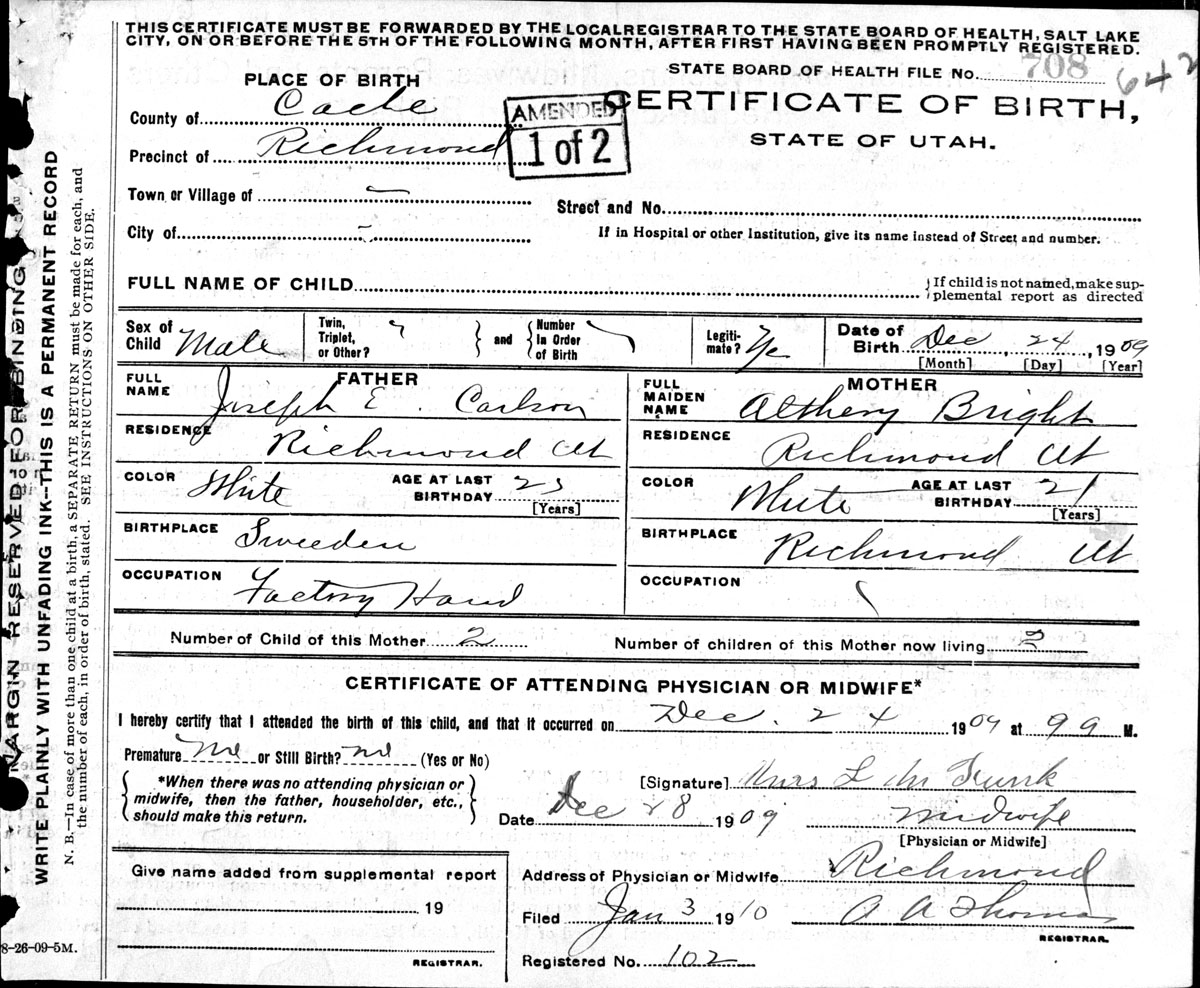 THIS CERTIFICATE MUST BE FORWARDED BY THE LOCAL REGISTRAR TO THE STATE BOARD OF HEALTH, SALT LAKE
CITY, ON OR BEFORE THE 5TH OF THE FOLLOWING MONTH, AFTER FIRST HAVING BEEN PROMPTLY REGISTERED.
STATE BOARD OF HEALTH FILE No. 708 642
PLACE OF BIRTH
CERTIFICATE OF BIRTH,
STATE OF UTAH.
AMENDED
1 of 2
County of Cache
Precinct of Richmond
Town or Village of
City of
Street and No.
If in Hospital or other Institution, give its name instead of Street and number.
FULL NAME OF CHILD
If child is not named, make sup-
plemental report as directed
Sex of Child Male
Twin, Triplet, or Other?
and
Number In Order of Birth
Legiti-mate? Ye
Date of Birth Dec, 24, 1909
[Month] [Day] [Year]
FATHER
FULL NAME Joseph E. Carlson
RESIDENCE Richmond Ut
COLOR White AGE AT LAST BIRTHDAY 23
[Years]
BIRTHPLACE Sweeden
OCCUPATION Factory Hand
MOTHER
FULL MAIDEN NAME Althery Bright
RESIDENCE Richmond Ut
COLOR White AGE AT LAST BIRTHDAY 21
[Years]
BIRTHPLACE Richmond Ut
OCCUPATION
Number of Child of this Mother 2 Number of children of this Mother now living 2
CERTIFICATE OF ATTENDING PHYSICIAN OR MIDWIFE*
I hereby certify that I attended the birth of this child, and that it occurred on Dec. 24 1909 at 99 M.
Premature or Still Birth? (Yes or No)
*When there was no attending physician or
midwife, then the father, householder, etc.,
should make this return.
[Signature] Mrs L M Funk
Date Dec 28 1909 Midwife
[Physician or Midwife]
Give name added from supplemental report
19
REGISTRAR.
Address of Physician or Midwife Richmond
Filed Jan 3 1910 A A Thomas
REGISTRAR.
Registered No. 102
8-26-09-5M.
MARGIN RESERVED FOR BINDING
WRITE PLAINLY WITH UNFADING INK--THIS IS A PERMANENT RECORD
N. B.—In case of more than one child at a birth, a SEPARATE RETURN must be made for each, and
the number of each, in order of birth, stated. SEE INSTRUCTIONS ON OTHER SIDE.